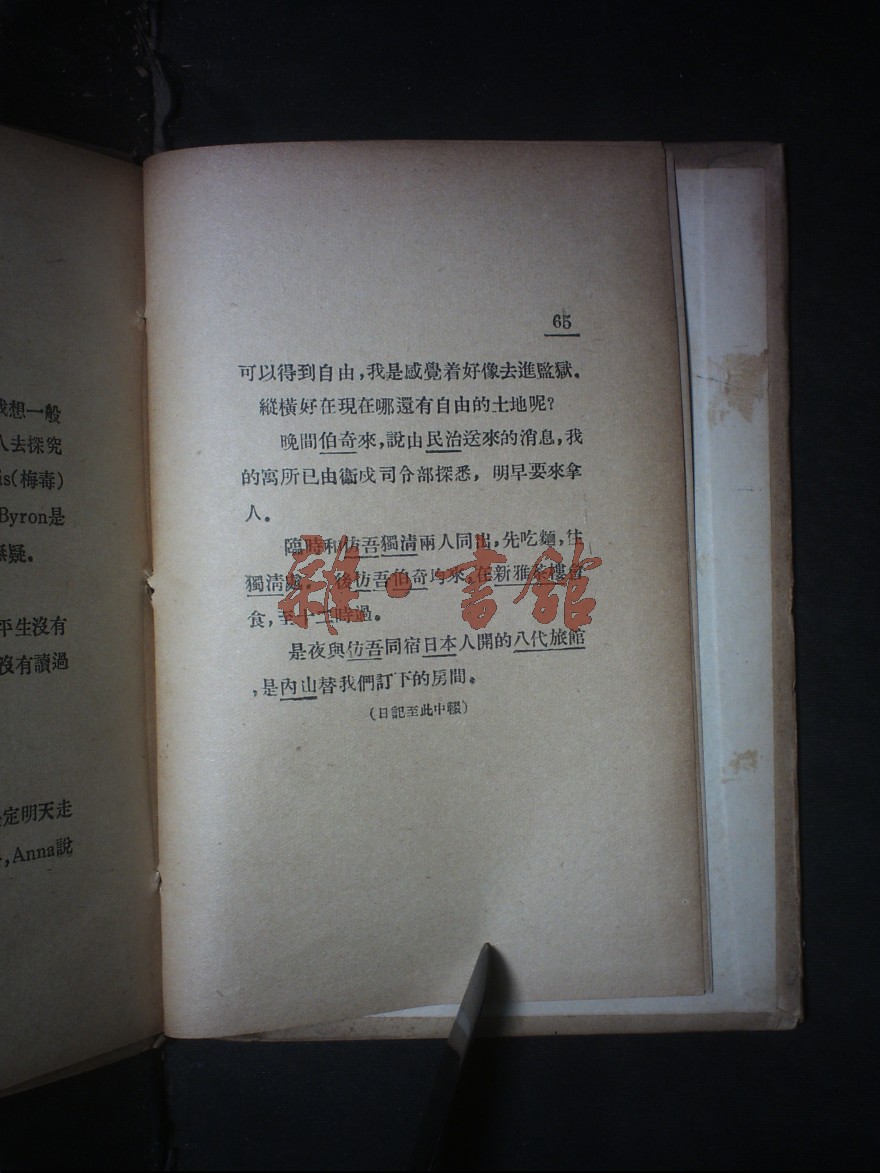 我想一般
人去探究
is(梅毒)
Byron是
無疑。
平生沒有
沒有讀過
定明天走
,Anna說
65
可以得到自由,我是感覺着好像去進監獄。
縱橫好在現在哪還有自由的土地呢?
晚間伯奇來,說由民治送來的消息,我
的寓所已由衞戍司令部探悉,明早要來拿
人。
臨時和仿吾獨清兩人同出,先吃麵,往
獨清處。後仿吾伯奇均來,在新雅茶樓會
食,至十二時過。
是夜與仿吾同宿日本人開的八代旅館
,是內山替我們訂下的房間。
(日記至此中輟)
雜·書館